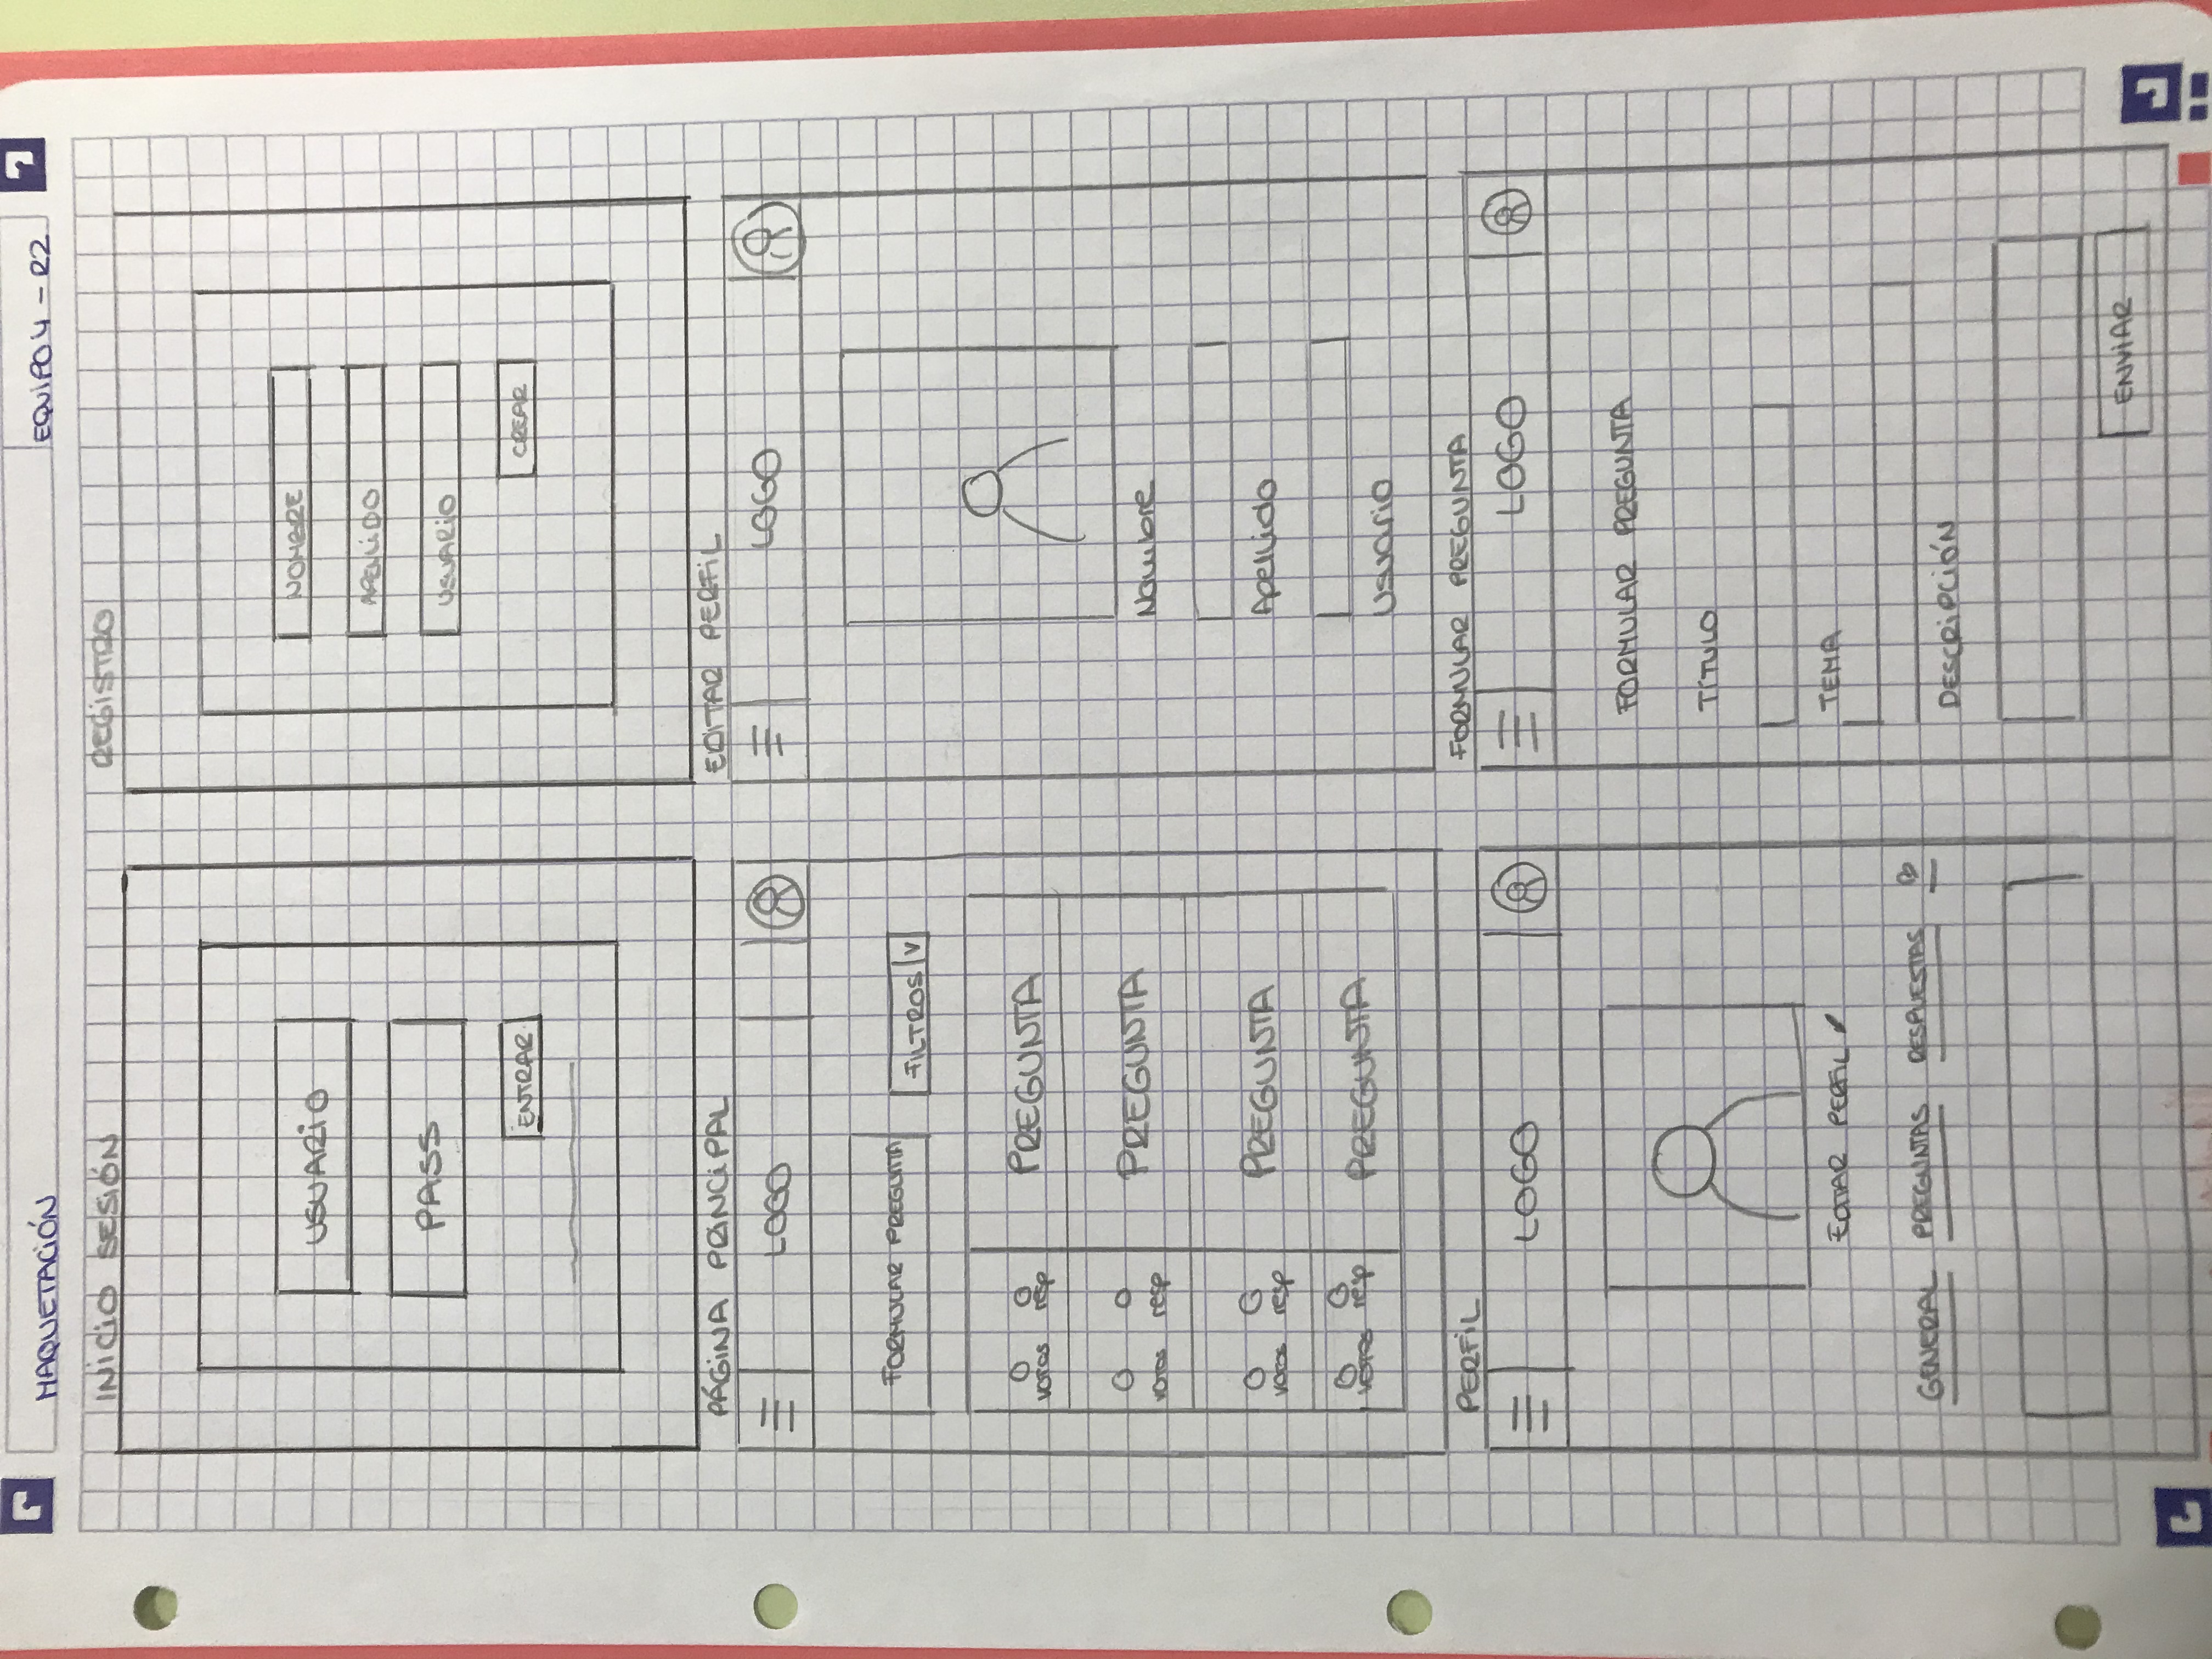 MAQUETACIÓN
EQUIPO 4 - R2
INICIO SESIÓN
USUARIO
PASS
ENTRAR
REGISTRO
NOMBRE
APELLIDO
USUARIO
CREAR
PÁGINA PRINCIPAL
LOGO
FORMULAR PREGUNTA
FILTROS V
votos resp PREGUNTA
votos resp PREGUNTA
votos resp PREGUNTA
votos resp PREGUNTA
EDITAR PERFIL
LOGO
Nombre
Apellido
Usuario
PERFIL
LOGO
EDITAR PERFIL
GENERAL PREGUNTAS RESPUESTAS
FORMULAR PREGUNTA
LOGO
FORMULAR PREGUNTA
TÍTULO
TEMA
DESCRIPCIÓN
ENVIAR